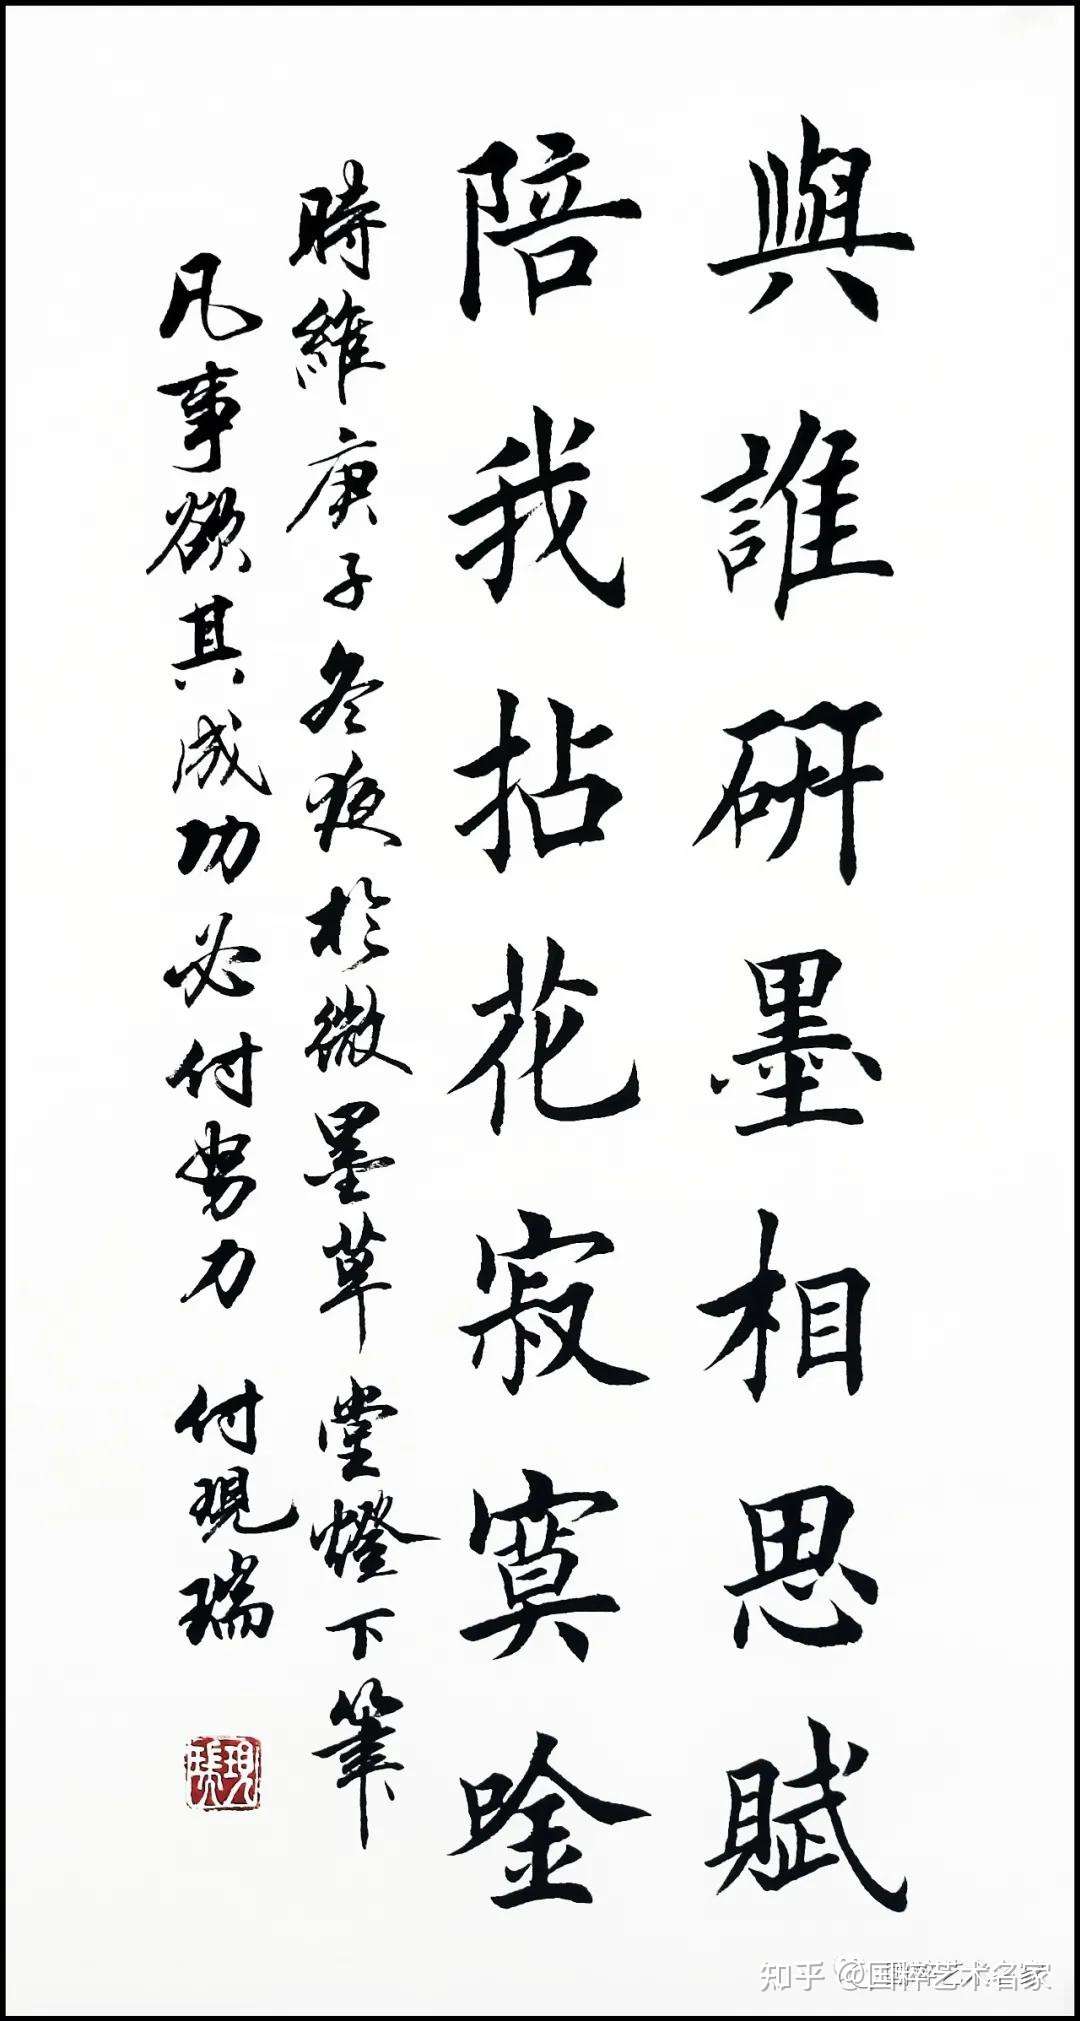 與誰研墨相思賦
陪我拈花寂寞唫
時維庚子冬夜於微墨草堂燈下筆
凡事欲其成功必付努力 付現瑞
知乎 @国粹艺术名家